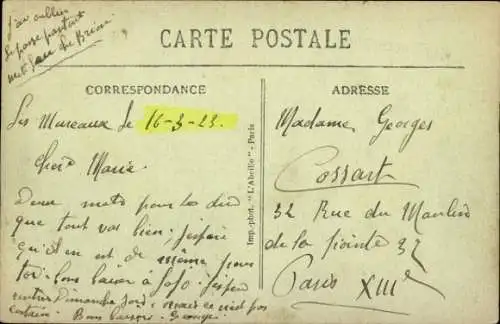 j'ai oublier
passe partout
CARTE POSTALE
CORRESPONDANCE
Les Mureaux le 16-3-23.
Marie.
Deux mots pour te dire
que tout vas bien; j'espère
qu'il en est de même pour
toi. bons baiser à Jojo. j'espère
rentrer Dimanche mais ce n'est pas
certain. Bons baisers. Georges.
Imp. phot. "L'Abeille" - Paris
ADRESSE
Madame Georges
Cossart
32 Rue du Moulin
de la pointe 32
Paris XIIIe